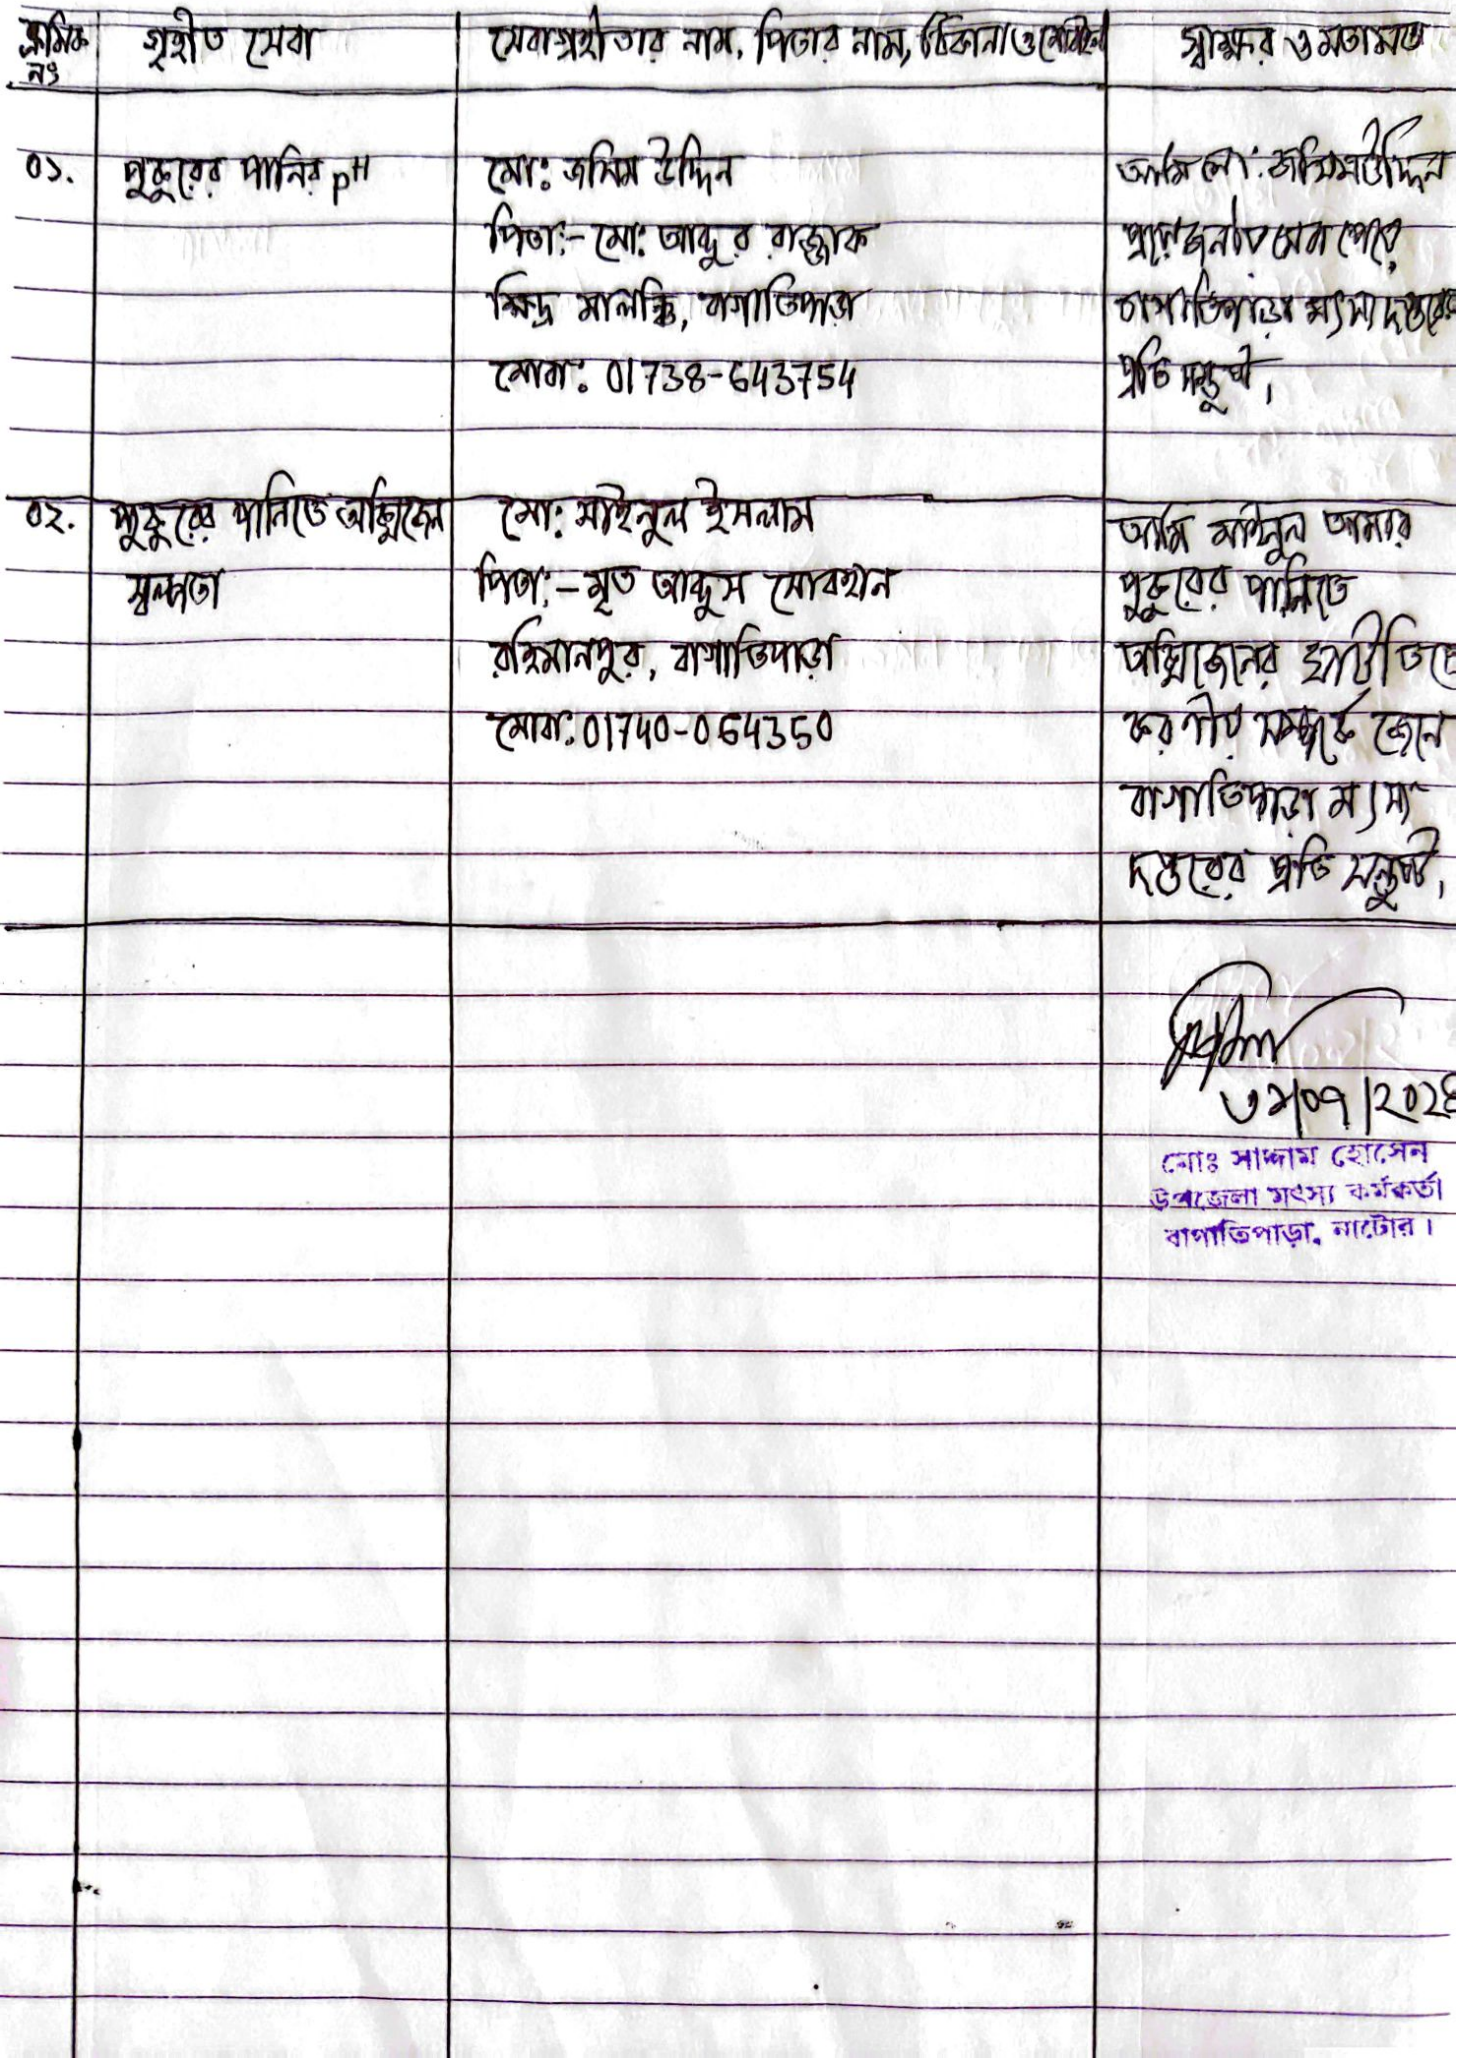 ক্রমিক নং
গৃহীত সেবা
সেবাগ্রহীতার নাম, পিতার নাম, ঠিকানা ও মোবাইল
স্বাক্ষর ও মতামত
০১.
পুকুরের পানির pH
মো: জসিম উদ্দিন
পিতা:- মো: আব্দুর রাজ্জাক
ক্ষিদ্র মালঞ্চি, বাগাতিপাড়া
মোবা: 01738-643754
আমি মো: জসিমউদ্দিন
প্রয়োজনীয় সেবা পেয়ে
বাগাতিপাড়া মৎস্য দপ্তরের
প্রতি সন্তুষ্ট,
০২.
পুকুরের পানিতে অক্সিজেন
স্বল্পতা
মো: মাইনুল ইসলাম
পিতা:- মৃত আব্দুস সোবহান
রহিমানপুর, বাগাতিপাড়া
মোবা: 01740-064350
আমি মাইনুল আমার
পুকুরের পানিতে
অক্সিজেনের ঘাটতিতে
করণীয় সম্পর্কে জেনে
বাগাতিপাড়া মৎস্য
দপ্তরের প্রতি সন্তুষ্ট,
মোঃ সাদ্দাম হোসেন
উপজেলা মৎস্য কর্মকর্তা
বাগাতিপাড়া, নাটোর।